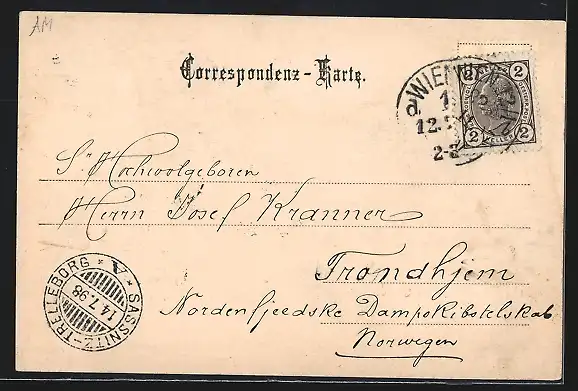 AM
Correspondenz-Karte.
WIEN
1
12.7
2-3
2 2
2 2
Sr Hochwolgeboren
Herrn Josef Kranner
Trondhjem
Nordenfjeedske Dampskibstelskab
Norwegen
SASSNITZ-TRELLEBORG
* A *
14.7.98